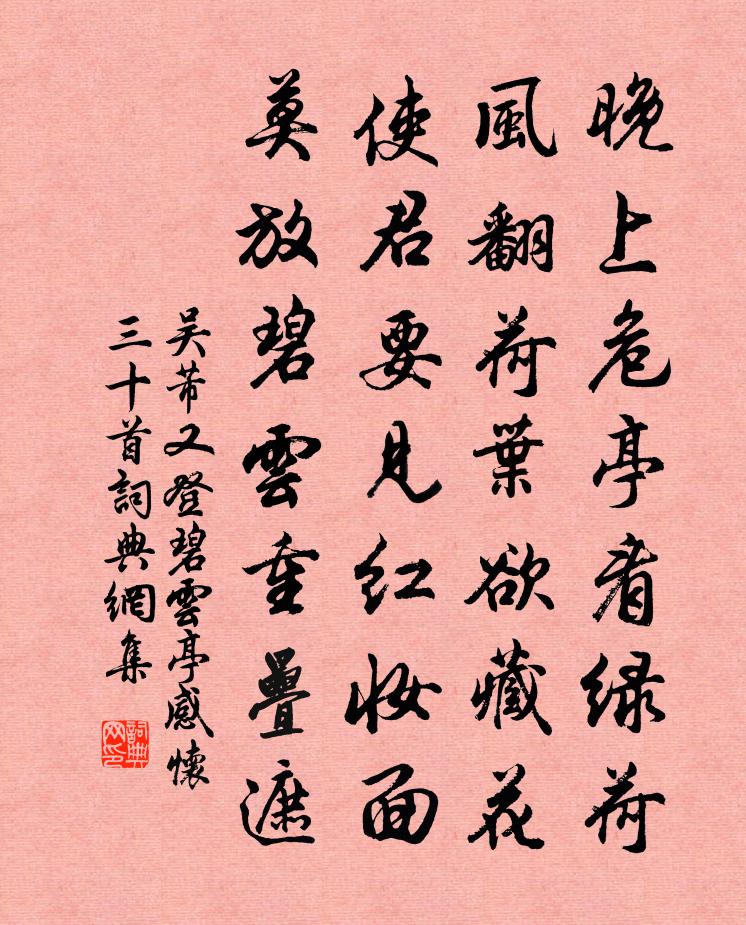 晚上危亭看绿荷
風翻荷葉欲藏花
使君要见红妆面
莫放碧雲重疊遮
吴芾又登碧雲亭感懷
三十首詞典網集
詞典
网印